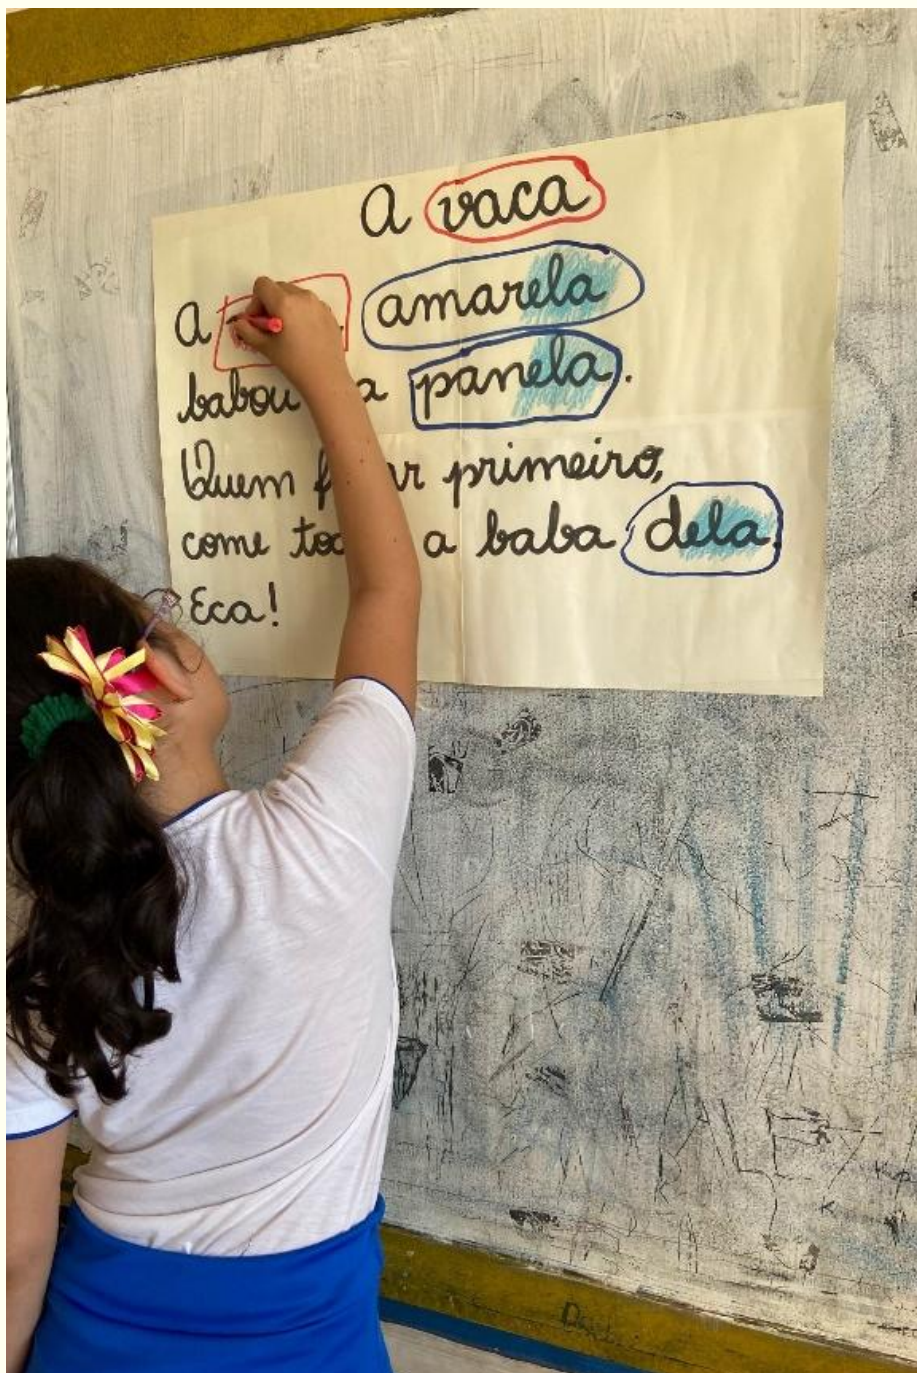 A vaca
A amarela
babou a panela.
Quem primeiro,
come a baba dela.
Eca!